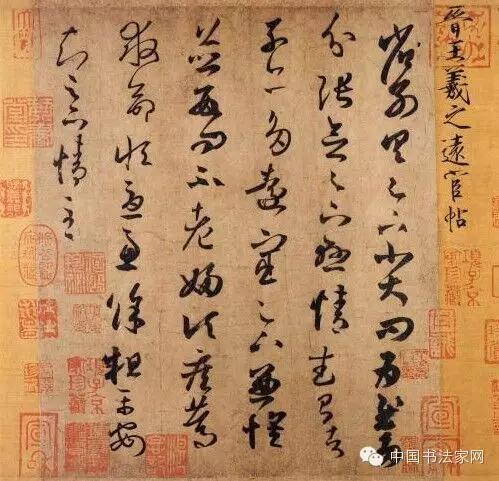 晉王羲之遠宦帖
省別具足下小大問為慰多
分張念足下懸情武昌諸
子亦多遠宦足下兼懷
並數問不老婦頃疾篤
救命恒憂慮餘粗平安
知足下情至
中国书法家网